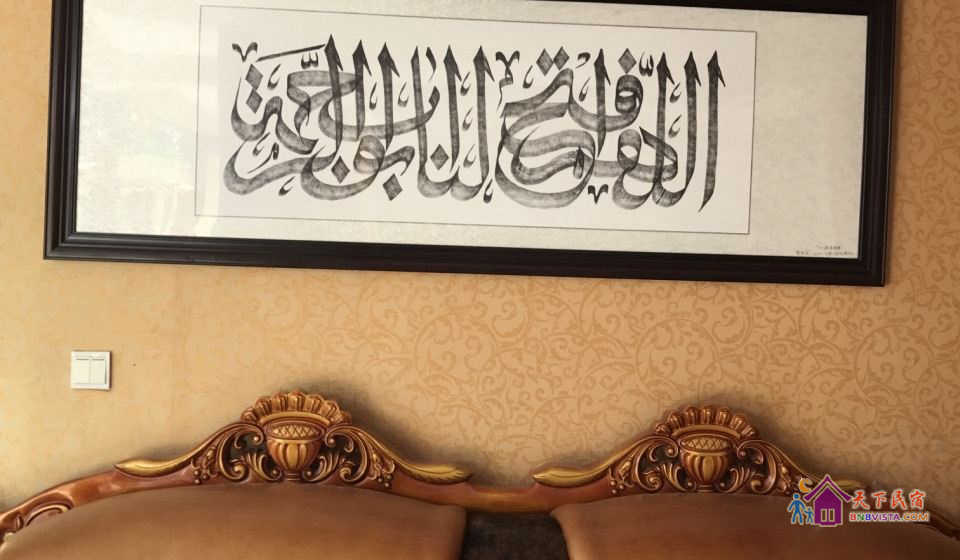 اللهم افتح لنا ابواب الرحمة
天下民宿
BNBVISTA.COM